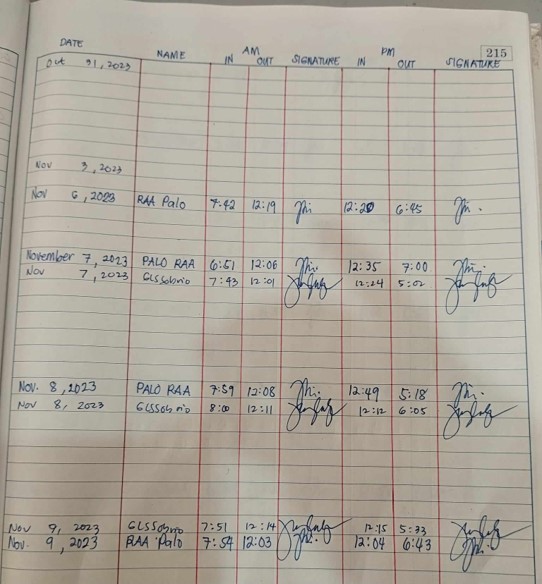 215
DATE NAME AM IN OUT SIGNATURE PM IN OUT SIGNATURE
Oct 31, 2023
Nov 3, 2023
Nov 6, 2023 RAA Palo 7:42 12:19 12:20 6:45
November 7, 2023 PALO RAA 6:51 12:06 12:35 7:00
Nov 7, 2023 GLSsobrio 7:43 12:01 12:24 5:02
Nov. 8, 2023 PALO RAA 7:59 12:08 12:49 5:18
Nov 8, 2023 GLSsobrio 8:00 12:11 12:12 6:05
Nov 9, 2023 GLSsobrio 7:51 12:14 12:15 5:33
Nov. 9, 2023 RAA Palo 7:54 12:03 12:04 6:43